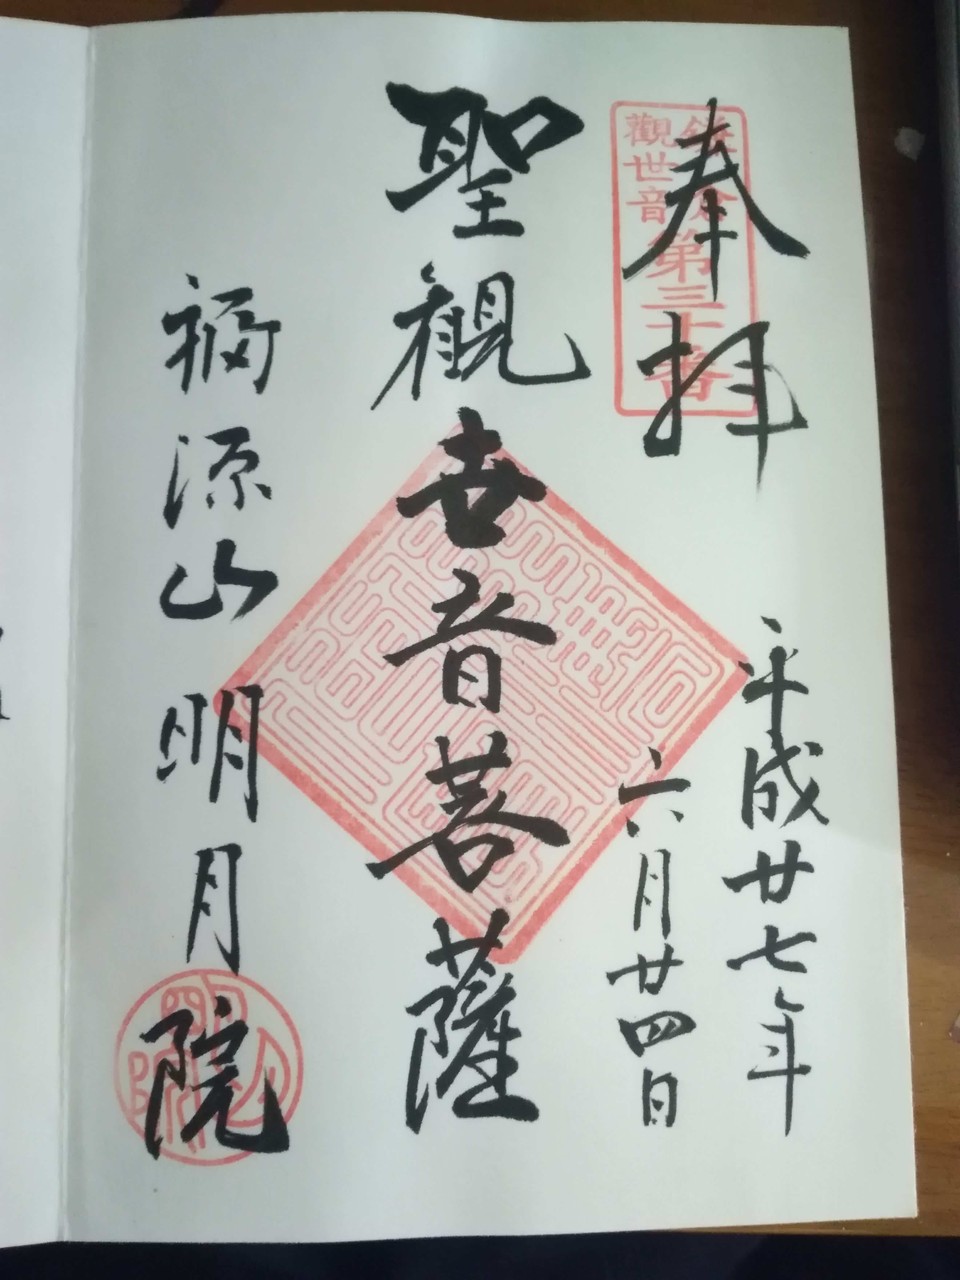 奉拝
鎌倉
觀世音
第三十番
平成廿七年
六月廿四日
聖観世音菩薩
福源山明月院